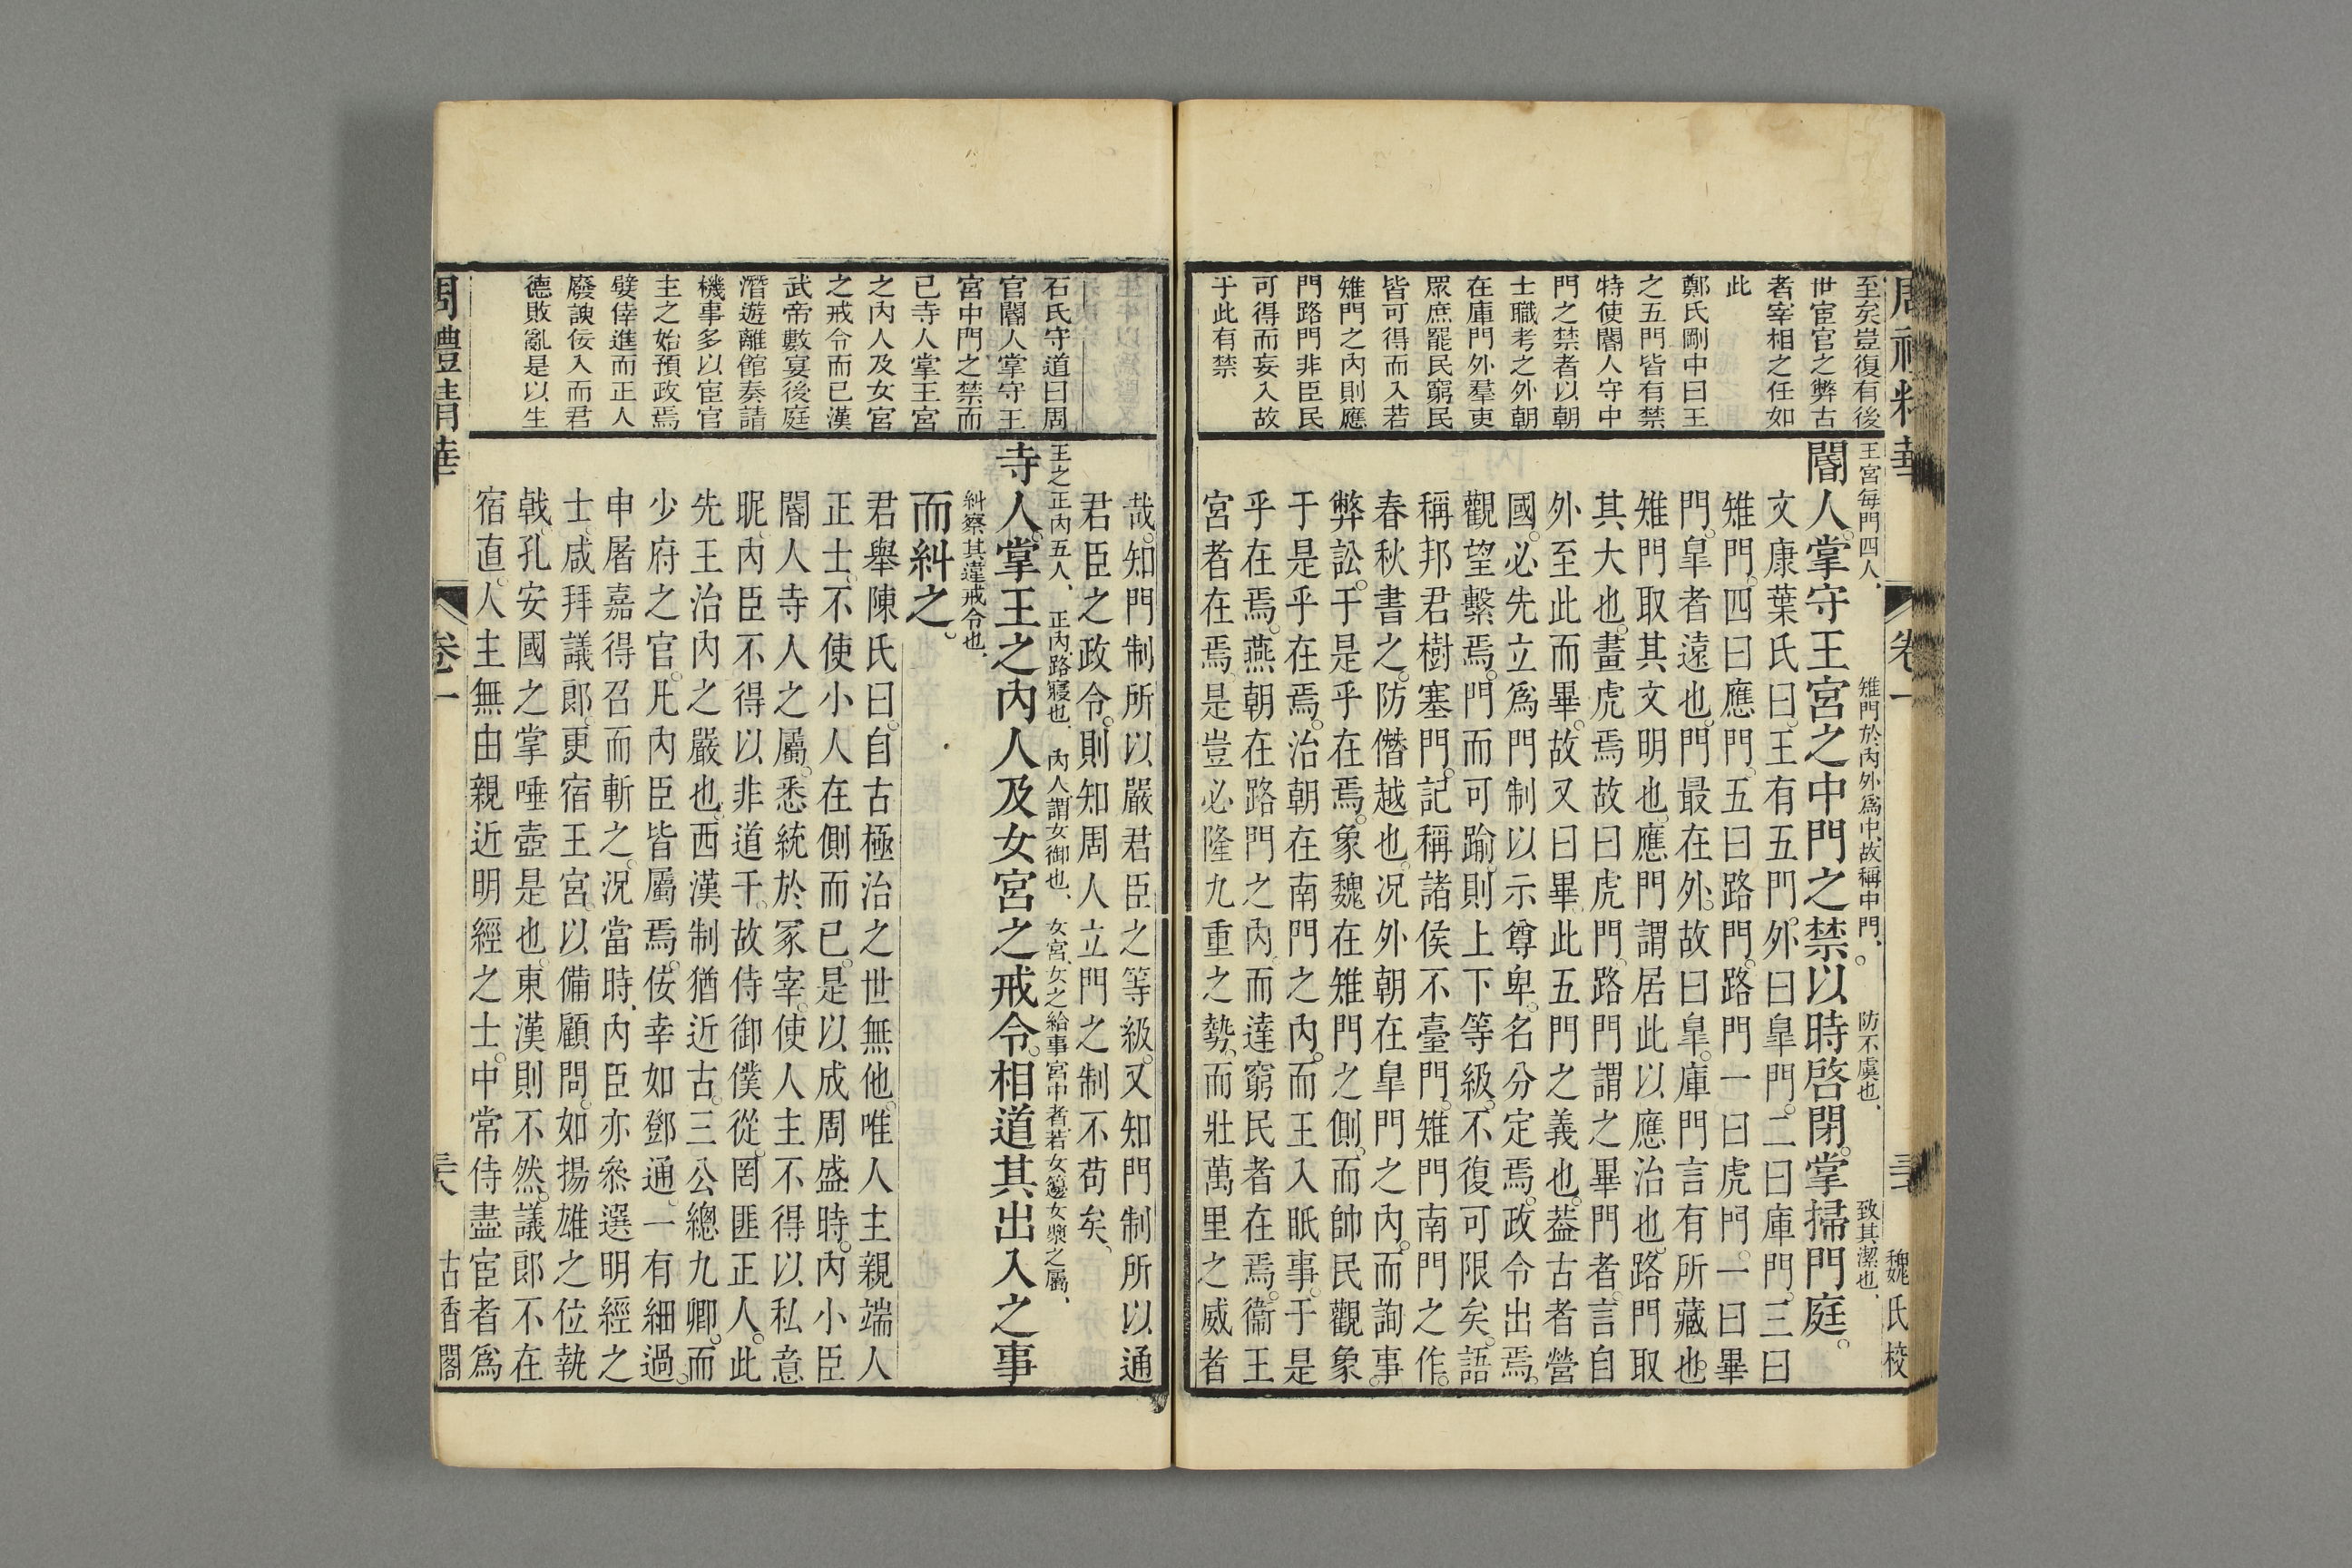 至矣豈復有後
世宦官之弊古
者宰相之任如
此
鄭氏剛中曰王
之五門皆有禁
特使閽人守中
門之禁者以朝
士職考之外朝
在庫門外羣吏
眾庶罷民窮民
皆可得而入若
雉門之內則應
門路門非臣民
可得而妄入故
于此有禁
王宮每門四人、 雉門於內外爲中、故稱中門、 防不虞也、 致其潔也、
閽人。掌守王宮之中門之禁。以時啓閉。掌掃門庭。
文康葉氏曰。王有五門。外曰皐門。二曰庫門。三曰
雉門。四曰應門。五曰路門。路門一曰虎門。一曰畢
門。皐者遠也。門最在外。故曰皐。庫門言有所藏也。
雉門取其文明也。應門謂居此以應治也。路門取
其大也。畫虎焉故曰虎門。路門謂之畢門者。言自
外至此而畢。故又曰畢。此五門之義也。葢古者營
國。必先立爲門制以示尊卑。名分定焉。政令出焉。
觀望繫焉。門而可踰。則上下等級。不復可限矣。語
稱邦君樹塞門。記稱諸侯不臺門。雉門南門之作。
春秋書之。防僭越也。况外朝在皐門之內。而詢事。
弊訟。于是乎在焉。象魏在雉門之側。而帥民觀象。
于是乎在焉。治朝在南門之內。而王入眂事。于是
乎在焉。燕朝在路門之內。而達窮民者在焉。衞王
宮者在焉。是豈必隆九重之勢。而壯萬里之威者
周禮精華
卷一
魏氏校
石氏守道曰周
官閽人掌守王
宮中門之禁而
已寺人掌王宮
之內人及女宮
之戒令而已漢
武帝數宴後庭
潛遊離館奏請
機事多以宦官
主之始預政焉
嬖倖進而正人
廢諛佞入而君
德敗亂是以生
哉。知門制所以嚴君臣之等級。又知門制所以通
君臣之政令。則知周人立門之制不苟矣、
王之正內五人、 正內路寢也、 內人謂女御也、 女宮、女之給事宮中者、若女籩女漿之屬、
寺人。掌王之內人及女宮之戒令。相道其出入之事
糾察其違戒令也、
而糾之。
君舉陳氏曰。自古極治之世無他。唯人主親端人
正士。不使小人在側而已。是以成周盛時。內小臣
閽人寺人之屬。悉統於冢宰。使人主不得以私意
昵。內臣不得以非道干。故侍御僕從。罔匪正人。此
先王治內之嚴也。西漢制猶近古。三公總九卿。而
少府之官。凡內臣皆屬焉。佞幸如鄧通。一有細過。
申屠嘉得召而斬之。況當時、內臣亦叅選明經之
士。咸拜議郎。更宿王宮。以備顧問。如揚雄之位執
戟。孔安國之掌唾壺是也。東漢則不然。議郎不在
宿直。人主無由親近明經之士。中常侍盡宦者爲
周禮精華
卷一
古香閣